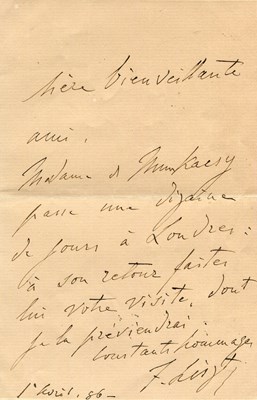 bienveillante
amie,
Madame de Munkacsy
passe une dizaine
de jours à Londres:
à son retour faites
lui votre visite, dont
je la préviendrai.
Constants hommages
F. Liszt
1er Avril, 86–